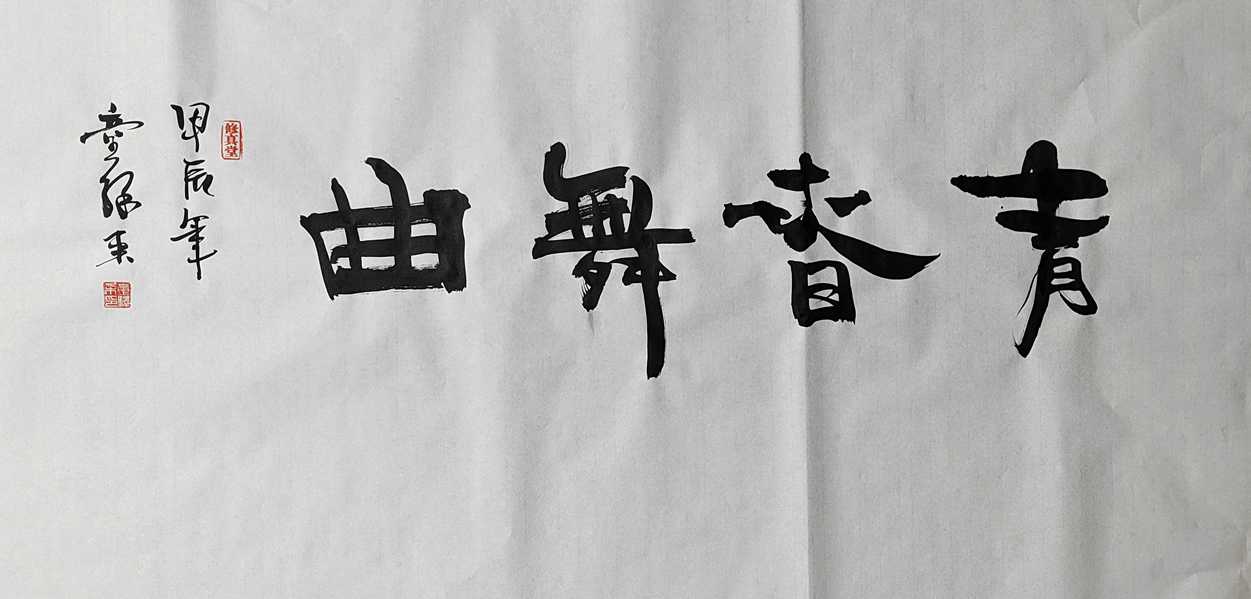 青春舞曲
修真堂
甲辰年
童